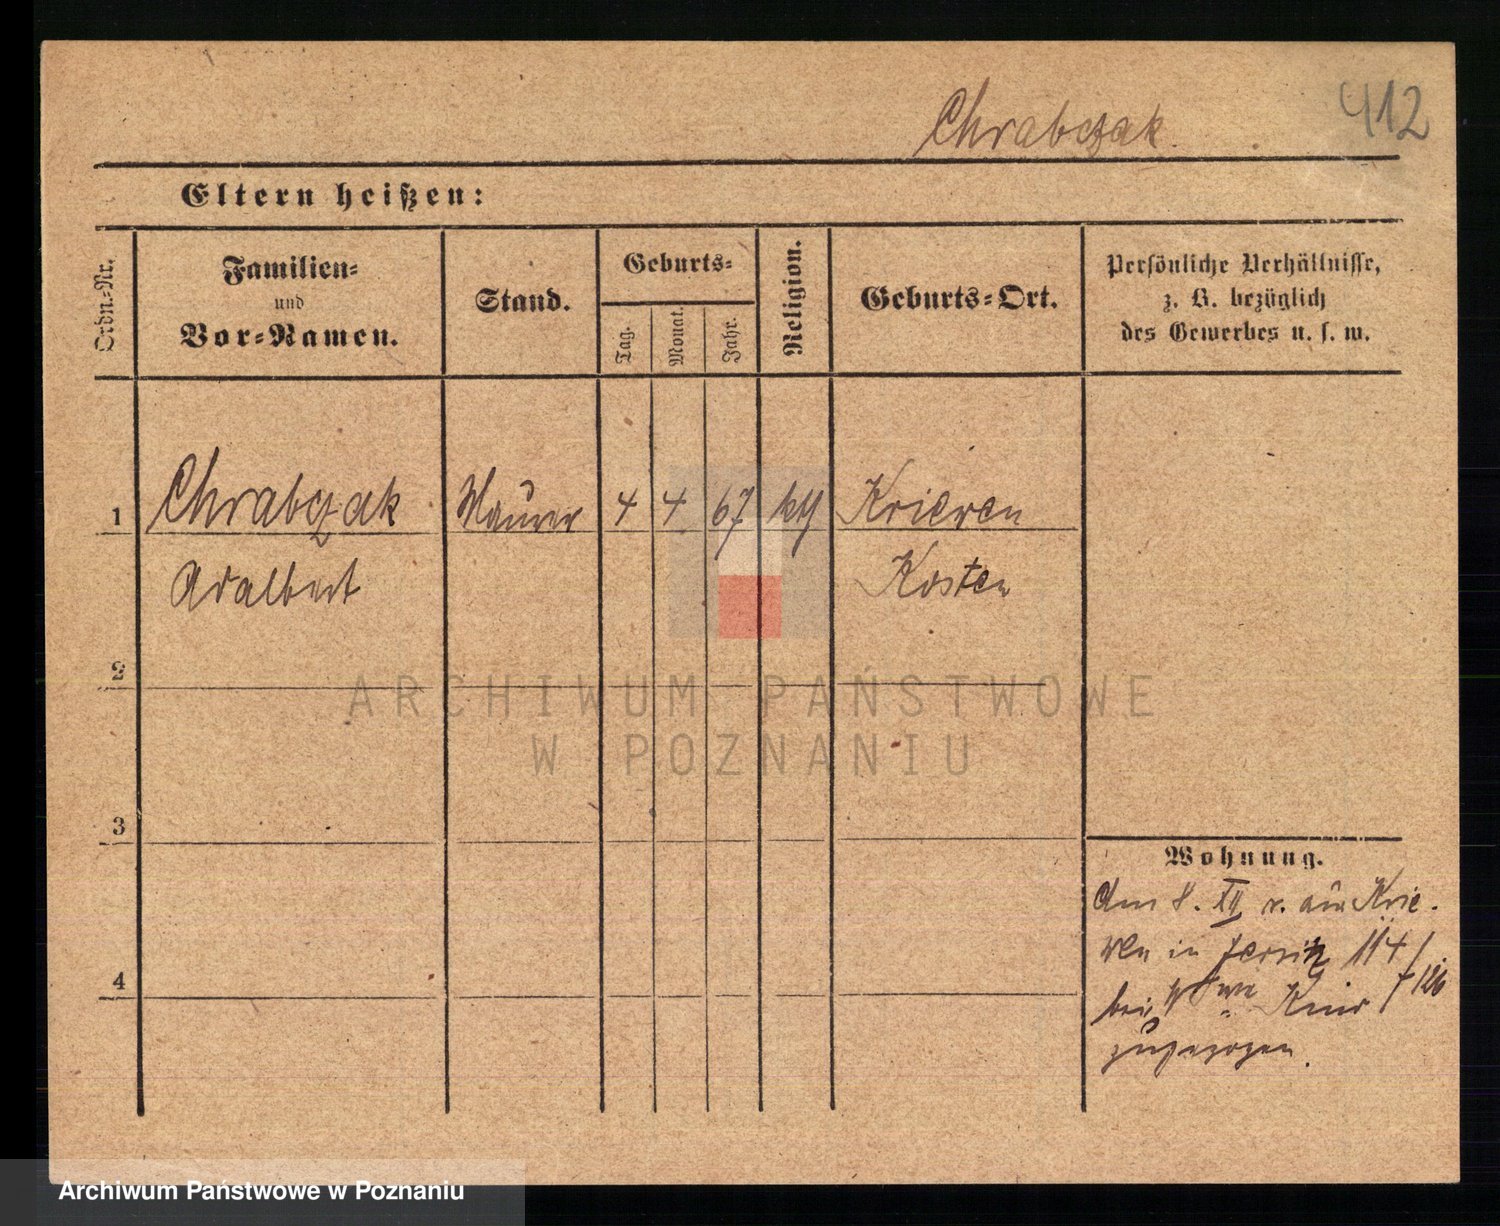 Chrabczak.
412
Eltern heißen:
Ordn.-Nr.
Familien-
und
Vor-Namen.
Stand.
Geburts-
Tag.
Monat.
Jahr.
Religion.
Geburts-Ort.
Persönliche Verhältnisse,
z. B. bezüglich
des Gewerbes u. s. w.
1 Chrabczak Maurer 4 4 67 kth Kriewen
Adalbert Kosten
2
3
4
Wohnung.
Am 8. XII v. aus Krie-
wen in Jersitz 114/
126
bei Wwe
zugezogen.
ARCHIWUM PAŃSTWOWE
W POZNANIU
Archiwum Państwowe w Poznaniu